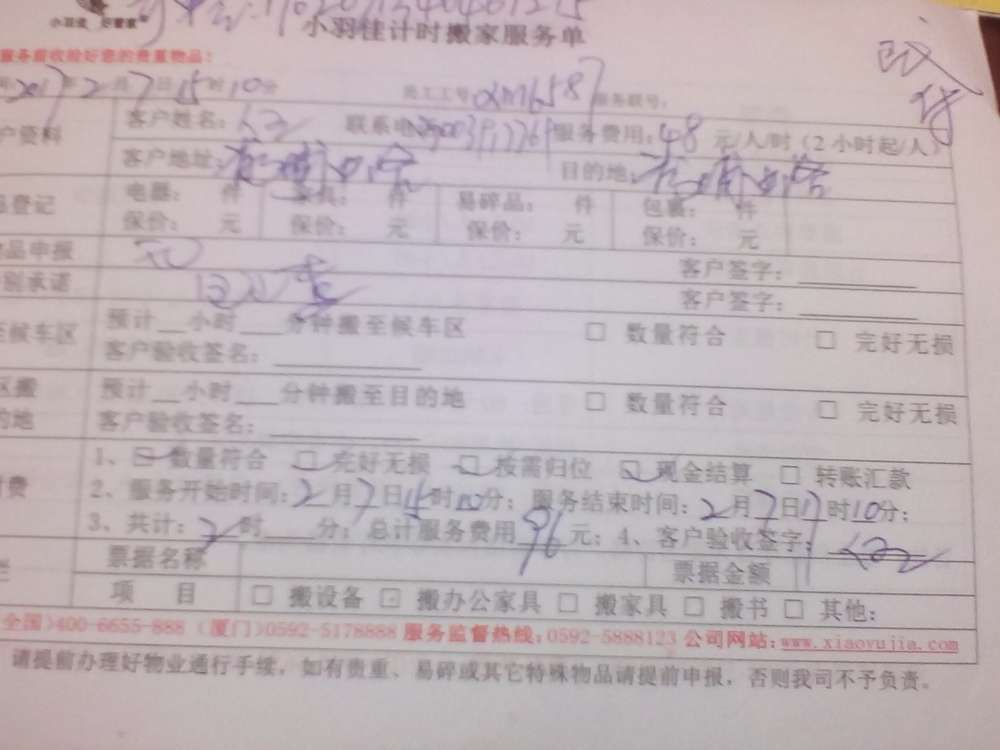 小羽佳 好管家
小羽佳计时搬家服务单
服务前收验好您的贵重物品!
2017年2月7日15时10分 员工工号 服务联号:
户资料 客户姓名: 联系电 服务费用:48元/人/时(2小时起/人)
客户地址: 目的地:
登记 电器: 件 件 易碎品: 件 包裹: 件
保价: 元 保价: 元 保价: 元 保价: 元
品申报 客户签字:
别承诺 客户签字:
至候车区 预计__小时___分钟搬至候车区 □ 数量符合 □ 完好无损
客户验收签名:
区搬 预计__小时___分钟搬至目的地 □ 数量符合 □ 完好无损
的地 客户验收签名:
付费 1、□ 数量符合 □ 完好无损 □ 按需归位 ☑ 现金结算 □ 转账汇款
2、服务开始时间:2月7日15时10分; 服务结束时间:2月7日17时10分;
3、共计:2时____分; 总计服务费用96元; 4、客户验收签字:
票据名称 票据金额
项 目 □ 搬设备 □ 搬办公家具 □ 搬家具 □ 搬书 □ 其他:
全国)400-6655-888 (厦门)0592-5178888 服务监督热线:0592-5888123 公司网站:www.xiaoyujia.com
请提前办理好物业通行手续,如有贵重、易碎或其它特殊物品请提前申报,否则我司不予负责。